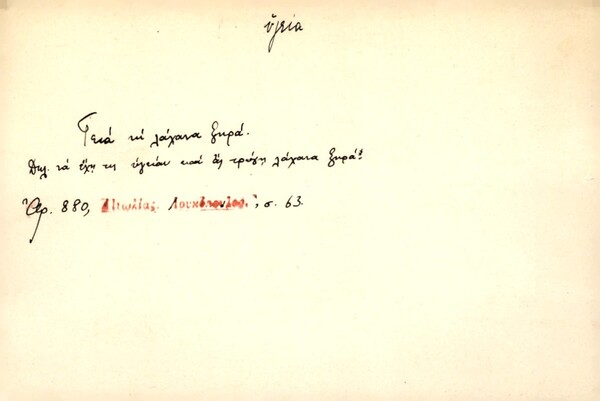 ὑγεία
Γειά κὶ λάχανα ξηρά.
Δηλ. νά ἔχῃ τις ὑγείαν καὶ ἄς τρώγῃ λάχανα ξηρά!
Ἀρ. 880, Αἰτωλίας, Λουκόπουλος, σ. 63.